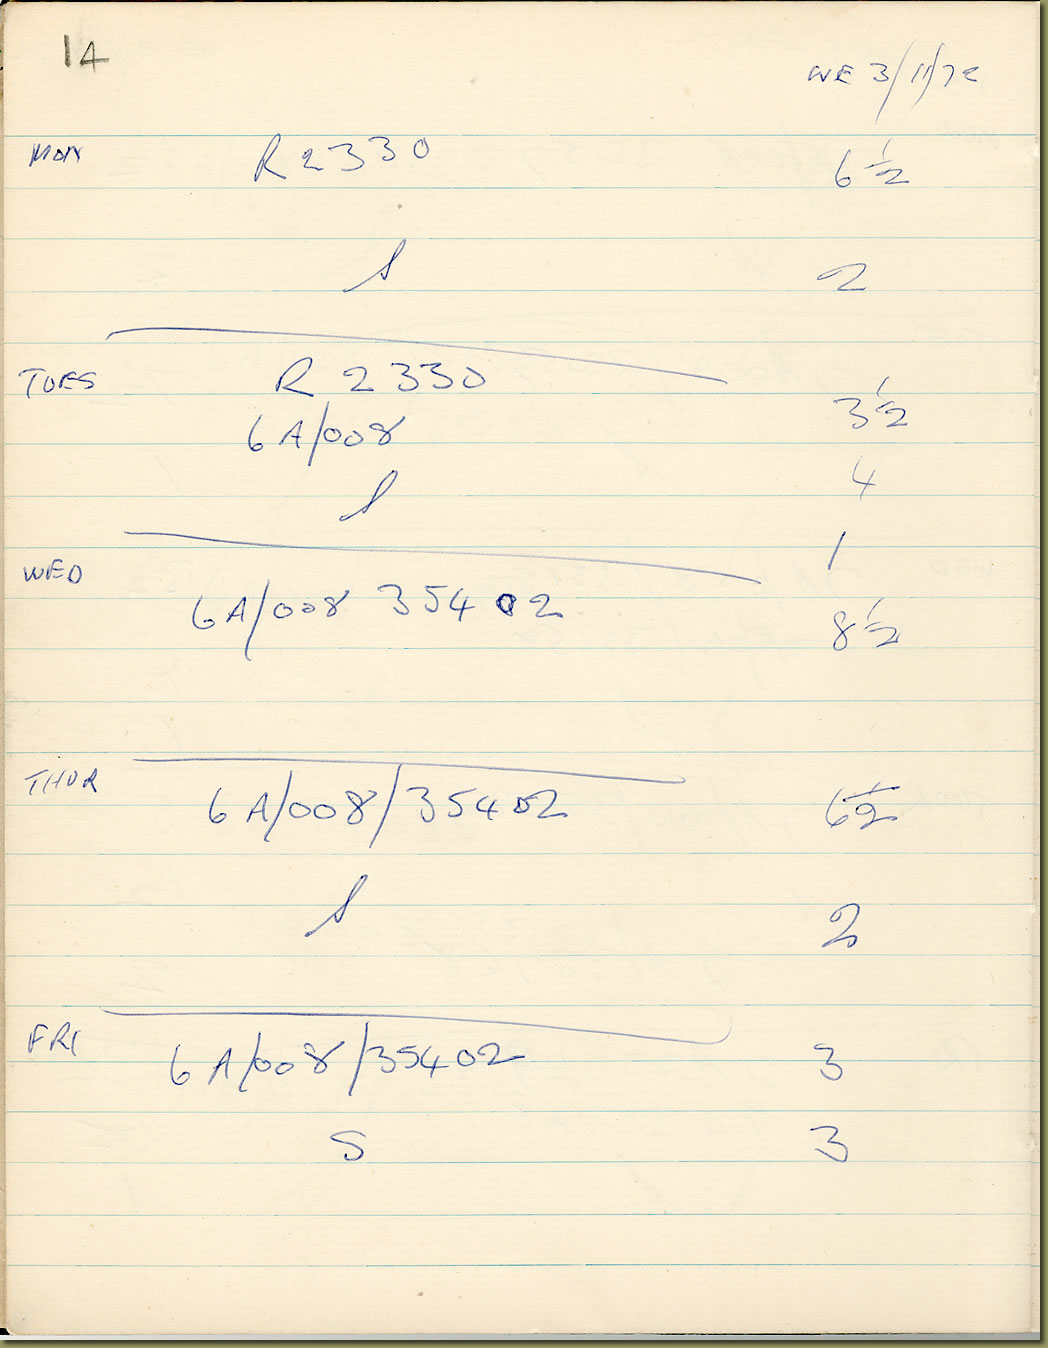 14
WE 3/11/72
MON R2330 6 1/2
S 2
TUES R 2330 3 1/2
6A/008 4
S 1
WED 6A/008 35402 8 1/2
THUR 6A/008/35402 6 1/2
S 2
FRI 6A/008/35402 3
S 3